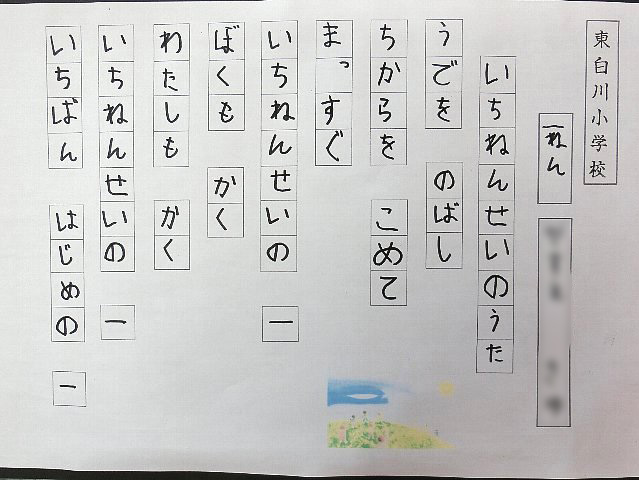 東白川小学校
一ねん
いちねんせいのうた
うでを　のばし
ちからを　こめて
まっすぐ
いちねんせいの　一
ぼくも　かく
わたしも　かく
いちねんせいの　一
いちばん　はじめの　一